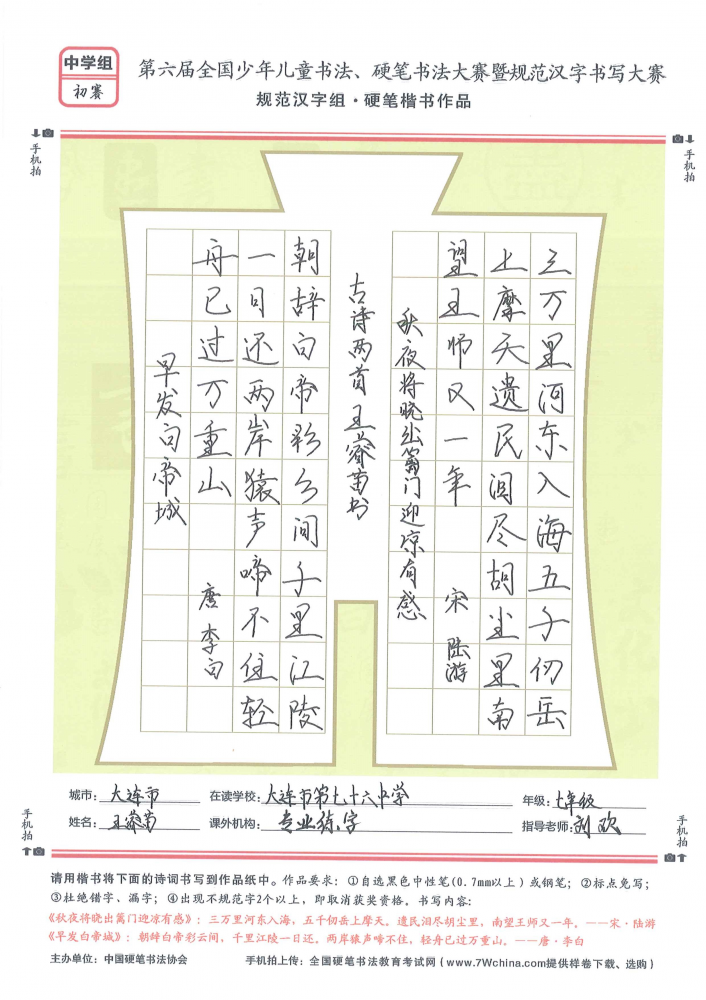 中学组
初赛
第六届全国少年儿童书法、硬笔书法大赛暨规范汉字书写大赛
规范汉字组·硬笔楷书作品
手机拍
手机拍
三万里河东入海五千仞岳
上摩天遗民泪尽胡尘里南
望王师又一年
宋 陆游
秋夜将晓出篱门迎凉有感
古诗两首 王蓉苗书
朝辞白帝彩云间千里江陵
一日还两岸猿声啼不住轻
舟已过万重山
唐 李白
早发白帝城
城市: 大连市 在读学校: 大连市第七十六中学 年级: 七年级
姓名: 王蓉苗 课外机构: 专业练字 指导老师: 刘欢
手机拍
手机拍
请用楷书将下面的诗词书写到作品纸中。作品要求:①自选黑色中性笔(0.7mm以上)或钢笔;②标点免写;
③杜绝错字、漏字;④出现不规范字2个以上,即取消获奖资格。书写内容:
《秋夜将晓出篱门迎凉有感》:三万里河东入海,五千仞岳上摩天。遗民泪尽胡尘里,南望王师又一年。——宋·陆游
《早发白帝城》:朝辞白帝彩云间,千里江陵一日还。两岸猿声啼不住,轻舟已过万重山。——唐·李白
主办单位:中国硬笔书法协会 手机拍上传:全国硬笔书法教育考试网(www.7Wchina.com提供样卷下载、选购)